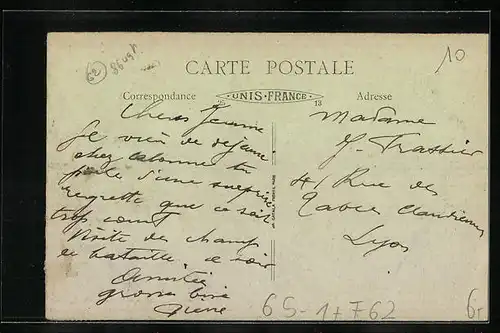 62
48098
10
CARTE POSTALE
Correspondance
UNIS-FRANCE
13
Adresse
Chere Jeanne
Je viens de déjeuner
chez
une surprise
regrette que ce soit
trop court
Visite des champs
de bataille. ce soir
Amitiés
grosses bises
Pierre
Madame
J. Frassier
41 Rue des
Tables Claudiennes
Lyon
6S-1+762
6-